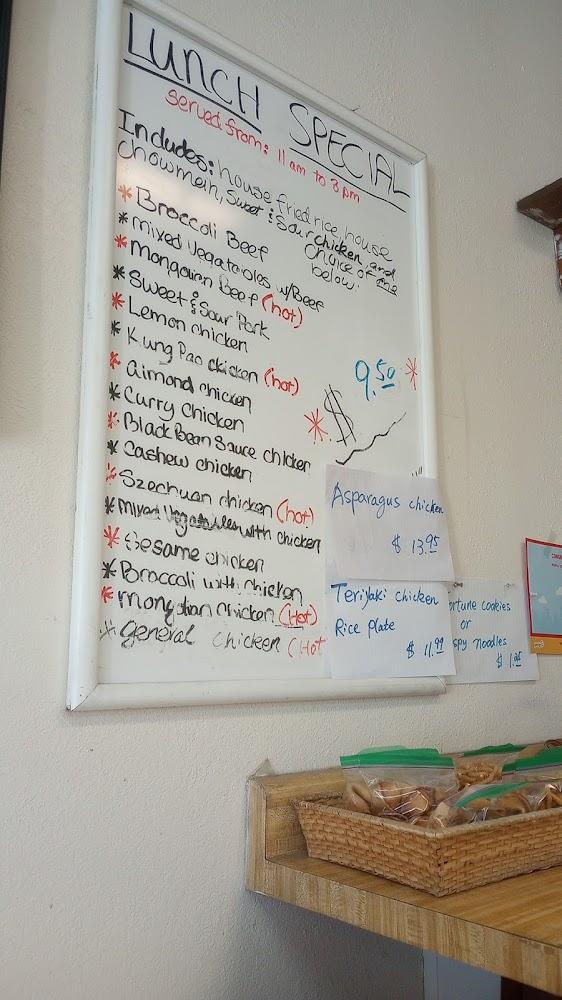 LUNCH SPECIAL
served from: 11am to 3pm
Includes: house fried rice, house
chowmein, Sweet & Sour chicken, and
choice of one
below:
* Broccoli Beef
* mixed vegetables w/Beef
* Mongolian Beef (hot)
* Sweet & Sour Pork
* Lemon chicken
* Kung Pao chicken (hot)
* almond chicken
* Curry chicken
* Black Bean Sauce chicken
* Cashew chicken
* Szechuan chicken (hot)
* mixed vegetables with chicken
* Sesame chicken
* Broccoli with chicken
* mongolian chicken (Hot)
* general chicken (Hot
* $ 9.50 *
Asparagus chicken
$ 13.95
Teriyaki chicken
Rice plate
$ 11.99
ortune cookies
or
spy noodles